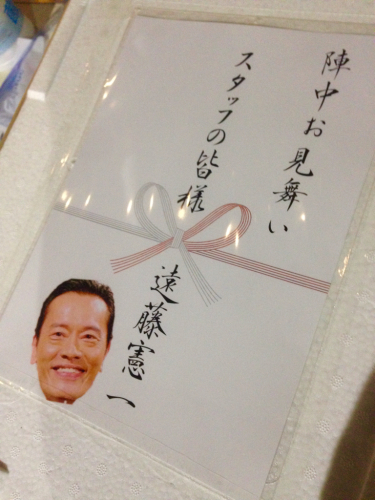 陣中お見舞い
スタッフの皆様
遠藤憲一